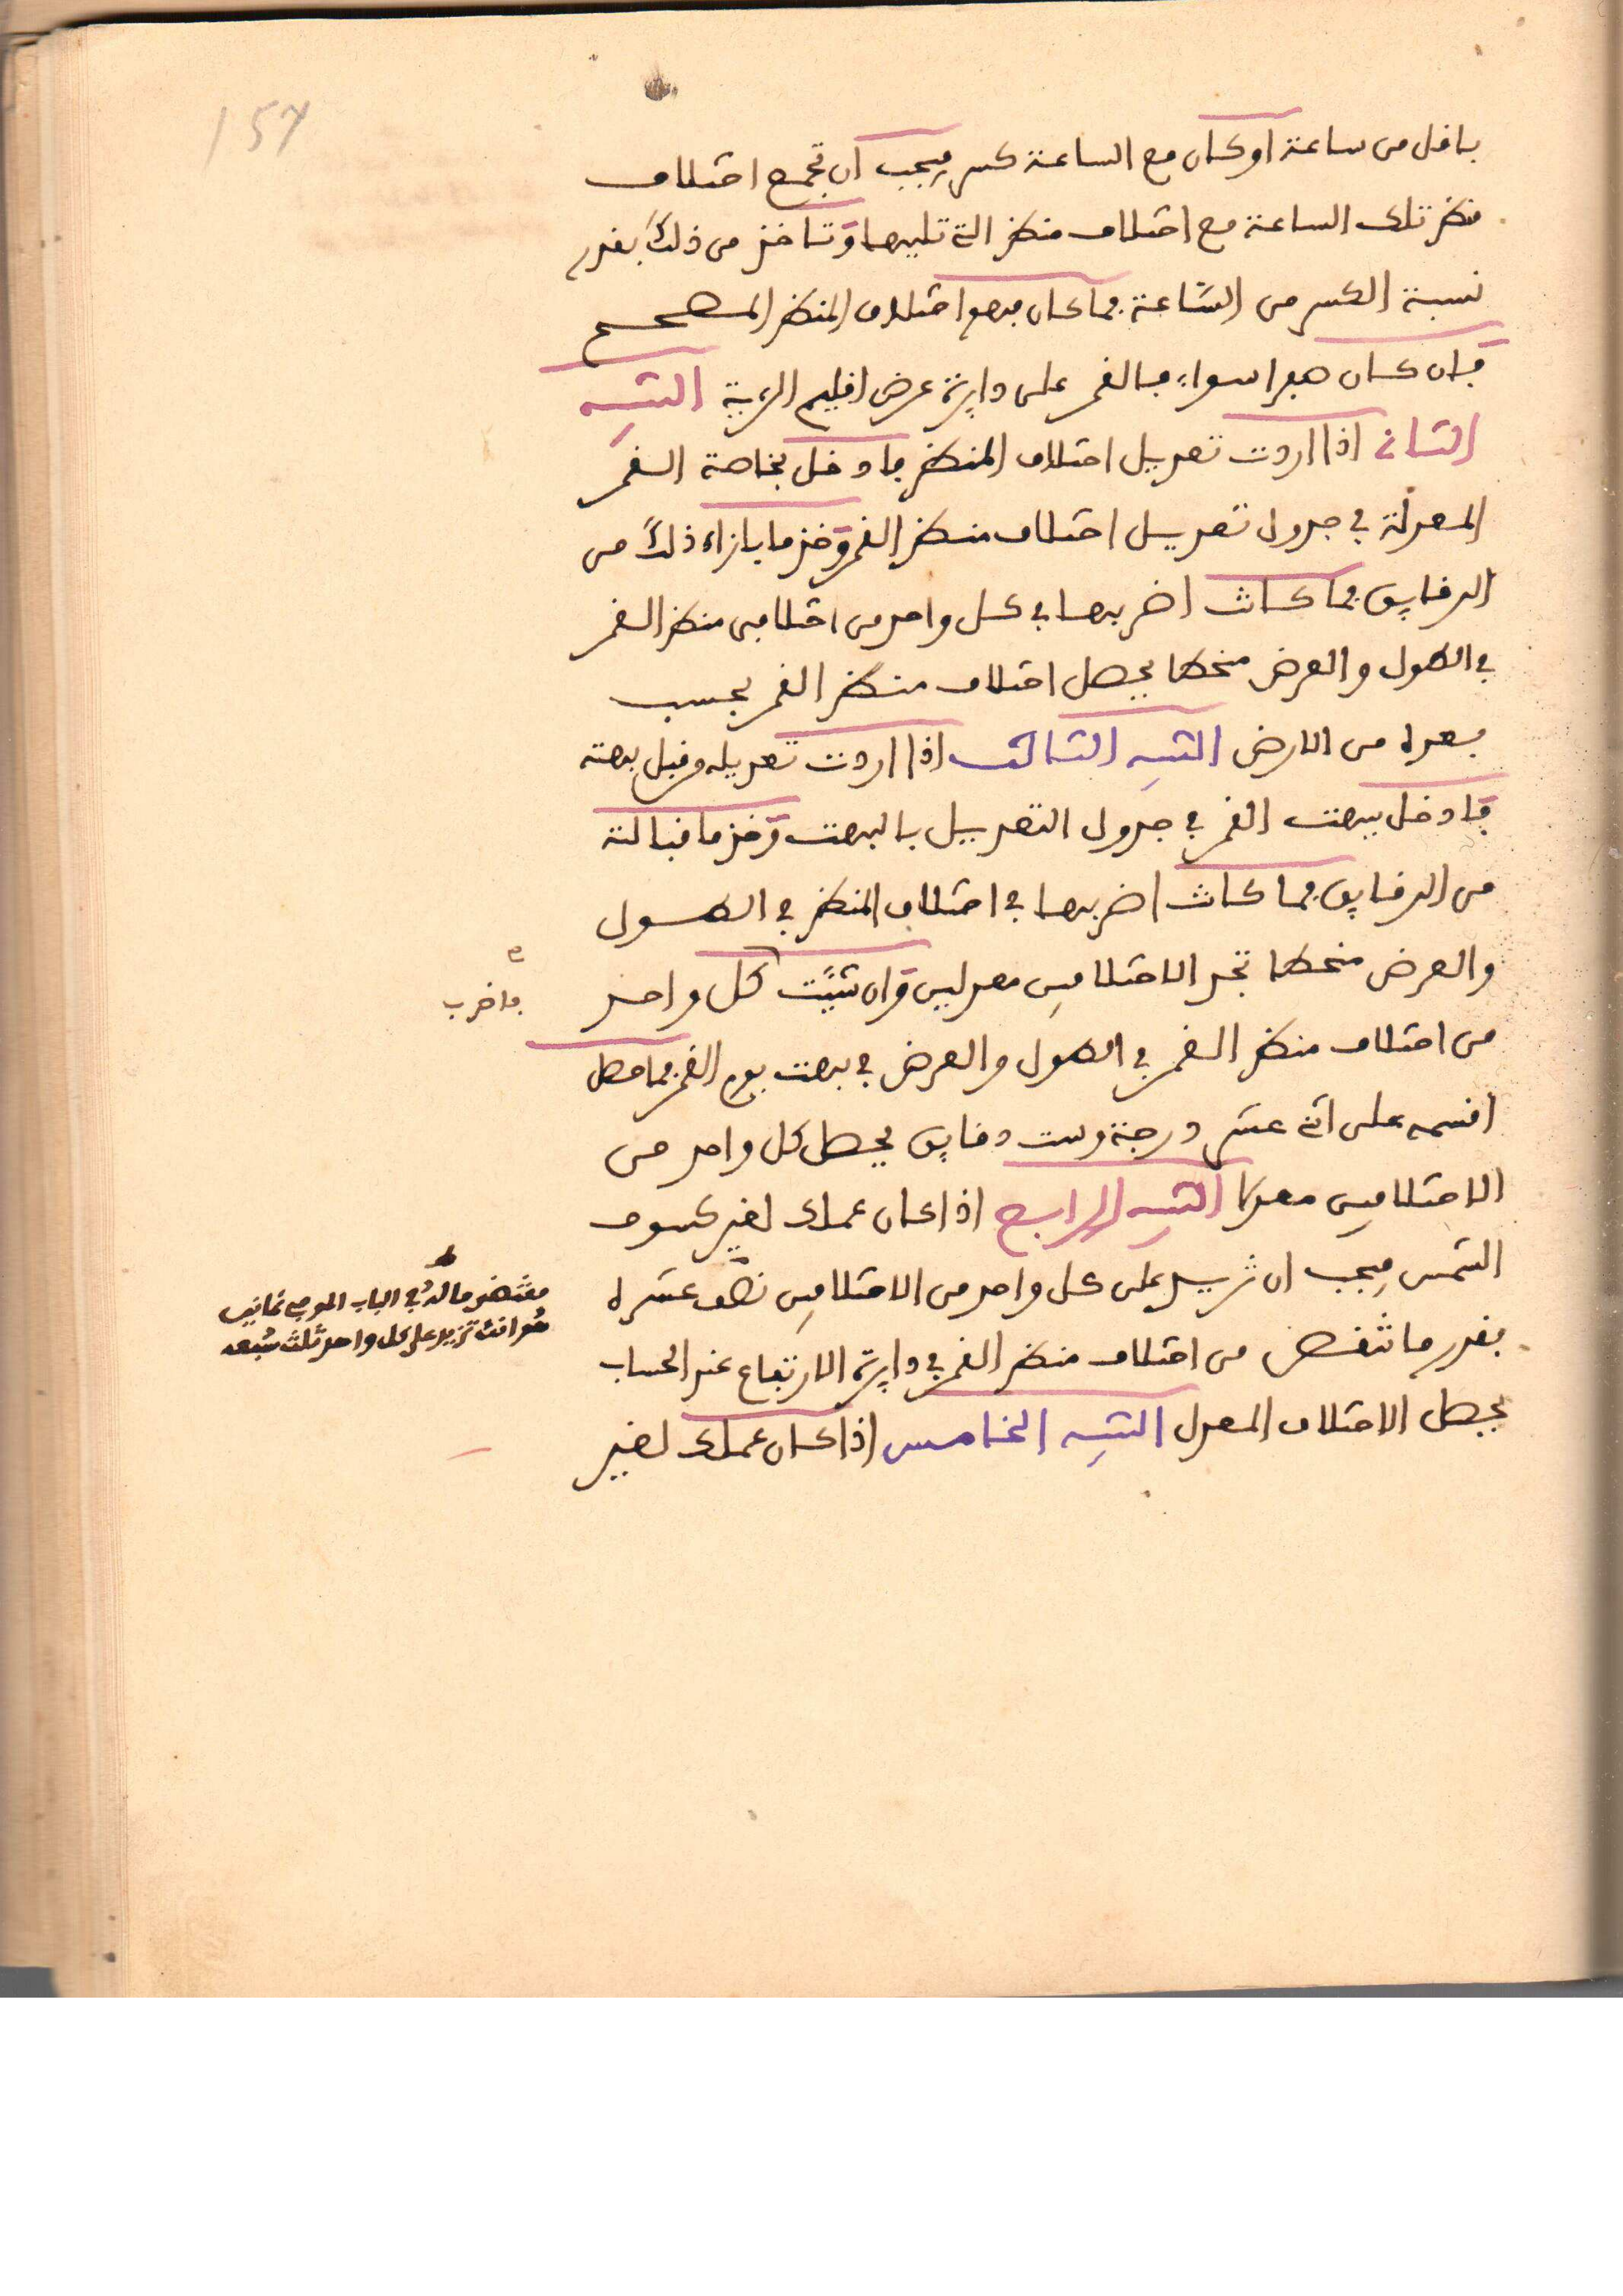 157
باقل من ساعة او كان مع الساعة كسر فيجب ان تجمع اختلاف
منظر تلك الساعة مع اختلاف منظر التي تليها وتاخذ من ذلك بقدر
نسبة الكسر من الساعة فما كان فهو اختلاف المنظر المصحح
فان كان صفرا سواء فالقمر على دايرة عرض اقليم الرءية التنبيه
الثاني اذا اردت تعديل اختلاف المنظر فادخل بخاصة القمر
المعدلة في جدول تعديل اختلاف منظر القمر وخذ ما بازاء ذلك من
الدقايق فما كانت اضربها في كل واحد من اختلافي منظر القمر
في الطول والعرض منحطا يحصل اختلاف منظر القمر بحسب
بعده من الارض التنبيه الثالث اذا اردت تعديله وقبل بهته
فادخل ببهت القمر في جدول التعديل بالبهت وخذ ما قبالته
من الدقايق فما كانت اضربها في اختلاف المنظر في الطول
والعرض منحطا تجد الاختلافين معدلين وان شيت كل واحد
فاضرب
من اختلاف منظر القمر في الطول والعرض في بهت يوم القمر فما حصل
اقسمه على اثني عشر درجة وست دقايق يحصل كل واحد من
الاختلافين معدلا التنبيه الرابع اذا كان عملك لغير كسوف
الشمس فيجب ان تزيد على كل واحد من الاختلافين نصف عشره
مقتضى ما له في الباب الموفي ثمانين
هو انك تزيد على كل واحد ثلث سبعه
بقدر ما تنقص من اختلاف منظر القمر في دايرة الارتفاع عند الحساب
يحصل الاختلاف المعدل التنبيه الخامس اذا كان عملك لغير